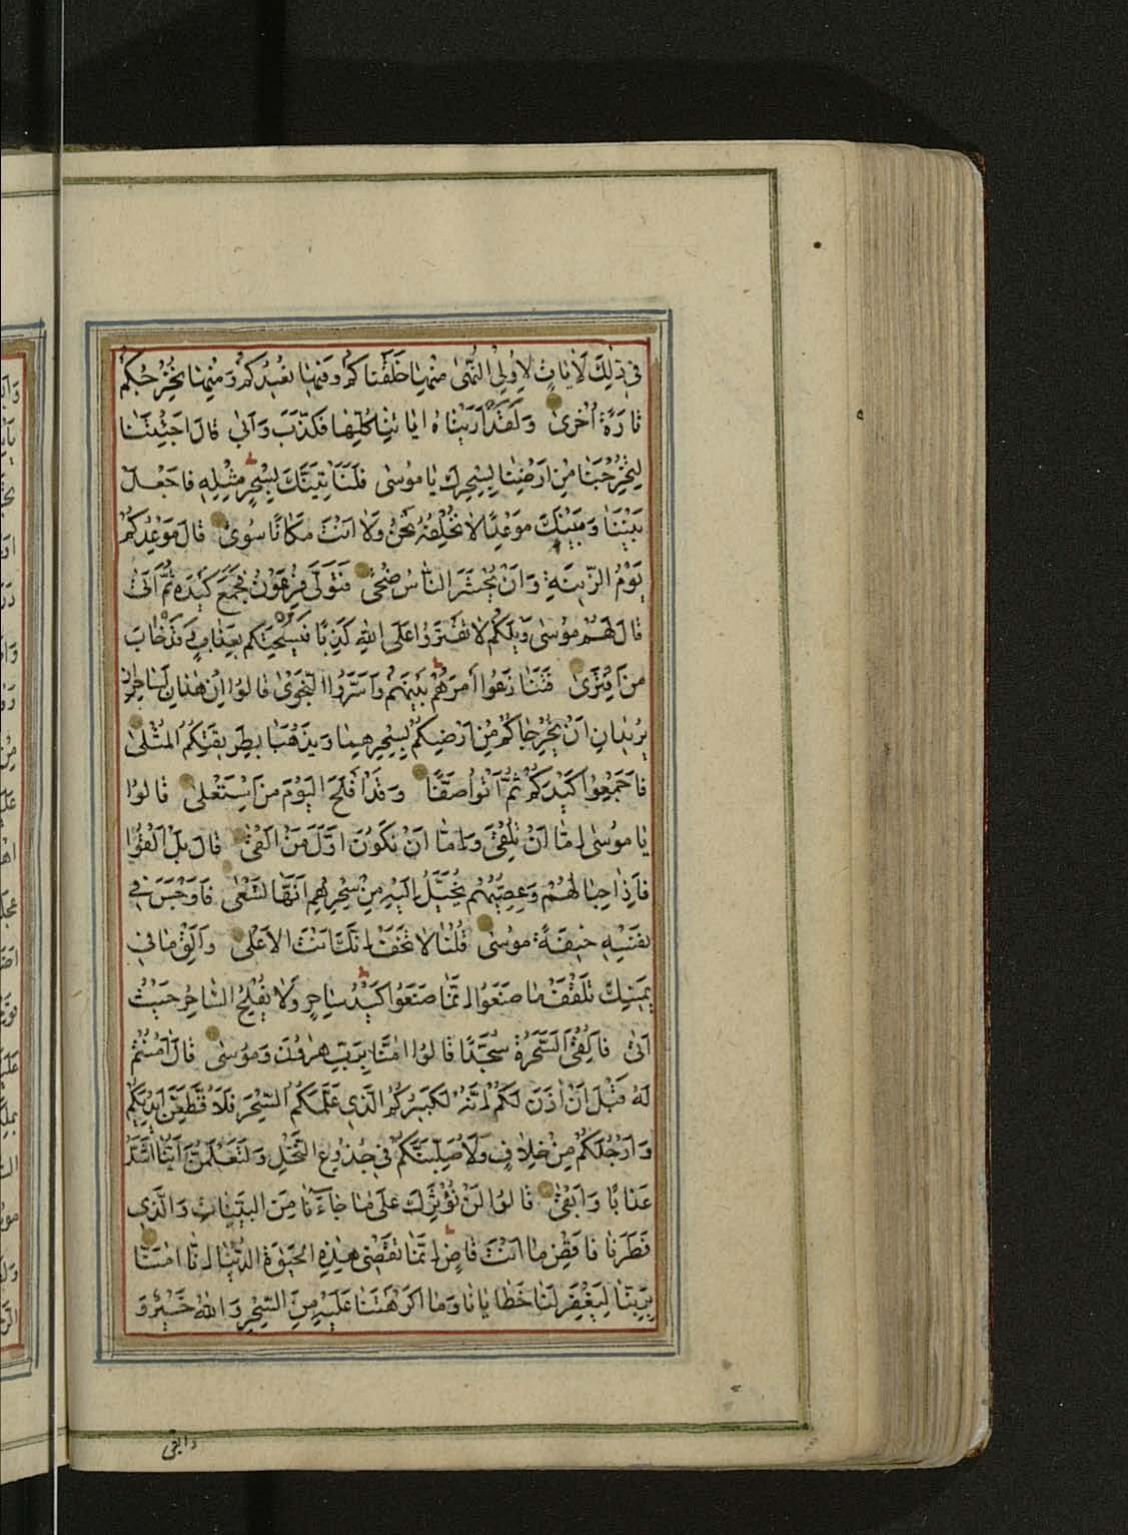 فِي ذٰلِكَ لَاٰيَاتٍ لِاُولِي النُّهٰى مِنْهَا خَلَقْنَاكُمْ وَفِيهَا نُعِيدُكُمْ وَمِنْهَا نُخْرِجُكُمْ
تَارَةً اُخْرٰى وَلَقَدْ اَرَيْنَاهُ اٰيَاتِنَا كُلَّهَا فَكَذَّبَ وَاَبٰى قَالَ اَجِئْتَنَا
لِتُخْرِجَنَا مِنْ اَرْضِنَا بِسِحْرِكَ يَا مُوسٰى فَلَنَأْتِيَنَّكَ بِسِحْرٍ مِثْلِهِ فَاجْعَلْ
بَيْنَنَا وَبَيْنَكَ مَوْعِدًا لَا نُخْلِفُهُ نَحْنُ وَلَا اَنْتَ مَكَانًا سُوًى قَالَ مَوْعِدُكُمْ
يَوْمُ الزِّينَةِ وَاَنْ يُحْشَرَ النَّاسُ ضُحًى فَتَوَلّٰى فِرْعَوْنُ فَجَمَعَ كَيْدَهُ ثُمَّ اَتٰى
قَالَ لَهُمْ مُوسٰى وَيْلَكُمْ لَا تَفْتَرُوا عَلَى اللهِ كَذِبًا فَيُسْحِتَكُمْ بِعَذَابٍ وَقَدْ خَابَ
مَنِ افْتَرٰى فَتَنَازَعُوا اَمْرَهُمْ بَيْنَهُمْ وَاَسَرُّوا النَّجْوٰى قَالُوا اِنْ هٰذَانِ لَسَاحِرَانِ
يُرِيدَانِ اَنْ يُخْرِجَاكُمْ مِنْ اَرْضِكُمْ بِسِحْرِهِمَا وَيَذْهَبَا بِطَرِيقَتِكُمُ الْمُثْلٰى
فَاَجْمِعُوا كَيْدَكُمْ ثُمَّ ائْتُوا صَفًّا وَقَدْ اَفْلَحَ الْيَوْمَ مَنِ اسْتَعْلٰى قَالُوا
يَا مُوسٰى اِمَّا اَنْ تُلْقِيَ وَاِمَّا اَنْ نَكُونَ اَوَّلَ مَنْ اَلْقٰى قَالَ بَلْ اَلْقُوا
فَاِذَا حِبَالُهُمْ وَعِصِيُّهُمْ يُخَيَّلُ اِلَيْهِ مِنْ سِحْرِهِمْ اَنَّهَا تَسْعٰى فَاَوْجَسَ فِي
نَفْسِهِ خِيفَةً مُوسٰى قُلْنَا لَا تَخَفْ اِنَّكَ اَنْتَ الْاَعْلٰى وَاَلْقِ مَا فِي
يَمِينِكَ تَلْقَفْ مَا صَنَعُوا اِنَّمَا صَنَعُوا كَيْدُ سَاحِرٍ وَلَا يُفْلِحُ السَّاحِرُ حَيْثُ
اَتٰى فَاُلْقِيَ السَّحَرَةُ سُجَّدًا قَالُوا اٰمَنَّا بِرَبِّ هٰرُونَ وَمُوسٰى قَالَ اٰمَنْتُمْ
لَهُ قَبْلَ اَنْ اٰذَنَ لَكُمْ اِنَّهُ لَكَبِيرُكُمُ الَّذِي عَلَّمَكُمُ السِّحْرَ فَلَاُقَطِّعَنَّ اَيْدِيَكُمْ
وَاَرْجُلَكُمْ مِنْ خِلَافٍ وَلَاُصَلِّبَنَّكُمْ فِي جُذُوعِ النَّخْلِ وَلَتَعْلَمُنَّ اَيُّنَا اَشَدُّ
عَذَابًا وَاَبْقٰى قَالُوا لَنْ نُؤْثِرَكَ عَلٰى مَا جَاءَنَا مِنَ الْبَيِّنَاتِ وَالَّذِي
فَطَرَنَا فَاقْضِ مَا اَنْتَ قَاضٍ اِنَّمَا تَقْضِي هٰذِهِ الْحَيٰوةَ الدُّنْيَا اِنَّا اٰمَنَّا
بِرَبِّنَا لِيَغْفِرَ لَنَا خَطَايَانَا وَمَا اَكْرَهْتَنَا عَلَيْهِ مِنَ السِّحْرِ وَاللهُ خَيْرٌ وَ
وابقى